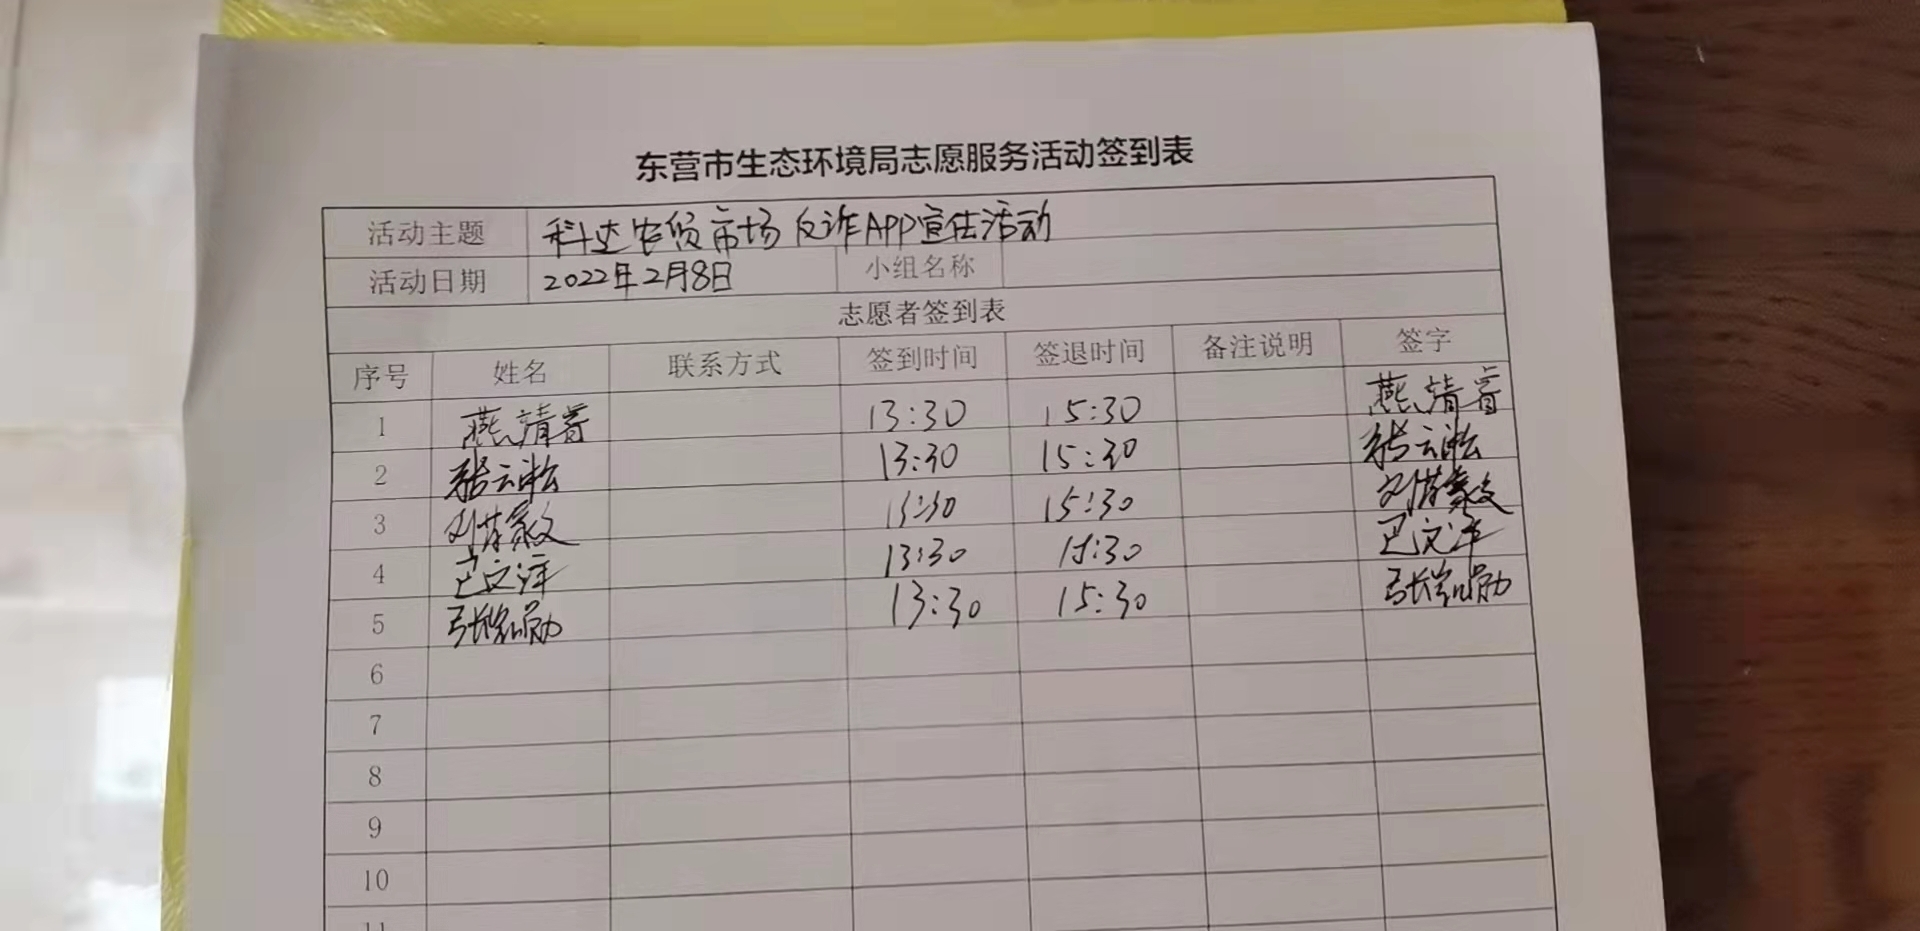 东营市生态环境局志愿服务活动签到表
活动主题 科达农贸市场反诈APP宣传活动
活动日期 2022年2月8日 小组名称
志愿者签到表
序号 姓名 联系方式 签到时间 签退时间 备注说明 签字
1 燕靖睿 13:30 15:30 燕靖睿
2 张云淞 13:30 15:30 张云淞
3 13:30 15:30
4 巴文洋 13:30 15:30 巴文洋
5 13:30 15:30
6
7
8
9
10
11